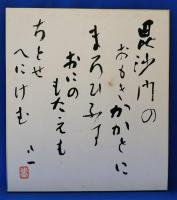 毘沙門の
おもきかかとに
まろびふす
おにの
もだえも
ちとせ
へにけむ